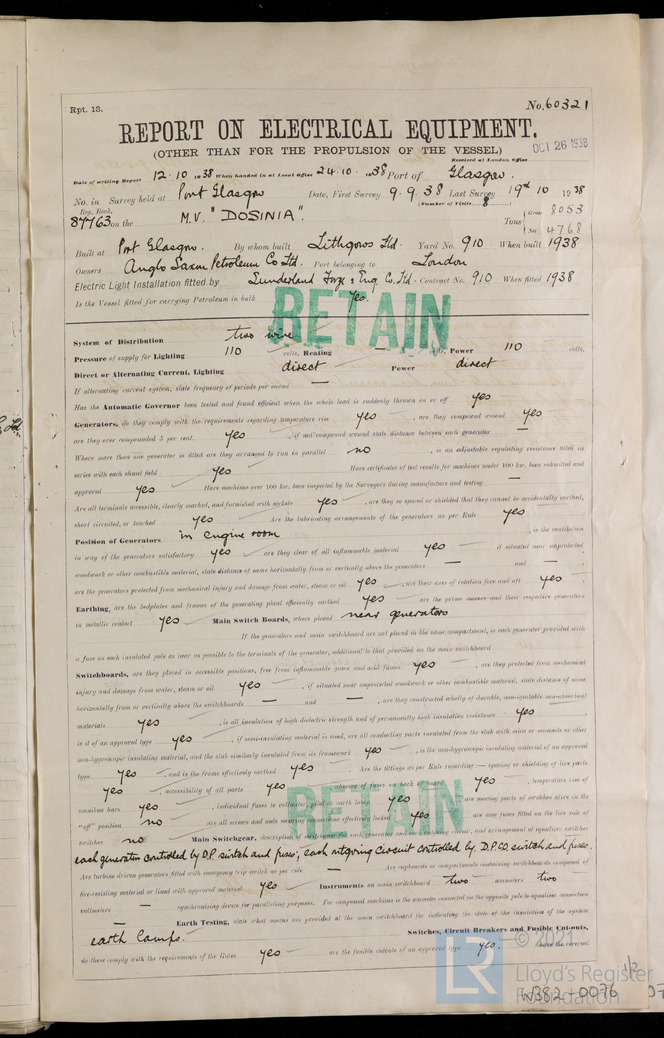 Rpt. 13.
No. 60321
REPORT ON ELECTRICAL EQUIPMENT.
(OTHER THAN FOR THE PROPULSION OF THE VESSEL)
Received at London Office OCT 26 1938
Date of writing Report 12·10·1938 When handed in at Local Office 24·10·1938 Port of Glasgow.
No. in Survey held at Port Glasgow Date, First Survey 9·9·38 Last Survey 19th 10 1938
Reg. Book. (Number of Visits 8)
87763 on the M.V. "DOSINIA". Tons { Gross 8053
Net 4768
Built at Port Glasgow. By whom built Lithgows Ltd. Yard No. 910 When built 1938
Owners Anglo Saxon Petroleum Co Ltd. Port belonging to London
Electric Light Installation fitted by Sunderland Forge & Eng. Co. Ltd. Contract No. 910 When fitted 1938
Is the Vessel fitted for carrying Petroleum in bulk Yes.
RETAIN
System of Distribution two wire
Pressure of supply for Lighting 110 volts, Heating — volts, Power 110 volts.
Direct or Alternating Current, Lighting direct Power direct
If alternating current system, state frequency of periods per second —
Has the Automatic Governor been tested and found efficient when the whole load is suddenly thrown on or off yes
Generators, do they comply with the requirements regarding temperature rise yes, are they compound wound yes
are they over compounded 5 per cent. yes, if not compound wound state distance between each generator —
Where more than one generator is fitted are they arranged to run in parallel no, is an adjustable regulating resistance fitted in
series with each shunt field yes Have certificates of test results for machines under 100 kw. been submitted and
approved yes Have machines over 100 kw. been inspected by the Surveyors during manufacture and testing —
Are all terminals accessible, clearly marked, and furnished with sockets yes, are they so spaced or shielded that they cannot be accidentally earthed,
short circuited, or touched yes Are the lubricating arrangements of the generators as per Rule yes
Position of Generators in engine room, is the ventilation
in way of the generators satisfactory yes are they clear of all inflammable material yes if situated near unprotected
woodwork or other combustible material, state distance of same horizontally from or vertically above the generators — and —,
are the generators protected from mechanical injury and damage from water, steam or oil yes, are their axes of rotation fore and aft yes
Earthing, are the bedplates and frames of the generating plant efficiently earthed yes are the prime movers and their respective generators
in metallic contact yes Main Switch Boards, where placed near generators
If the generators and main switchboard are not placed in the same compartment, is each generator provided with
a fuse on each insulated pole as near as possible to the terminals of the generator, additional to that provided on the main switchboard
Switchboards, are they placed in accessible positions, free from inflammable gases and acid fumes yes, are they protected from mechanical
injury and damage from water, steam or oil yes, if situated near unprotected woodwork or other combustible material, state distance of same
horizontally from or vertically above the switchboards — and —, are they constructed wholly of durable, non-ignitable non-absorbent
materials yes, is all insulation of high dielectric strength and of permanently high insulation resistance yes
is it of an approved type yes, if semi-insulating material is used, are all conducting parts insulated from the slab with mica or micanite or other
non-hygroscopic insulating material, and the slab similarly insulated from its framework yes, is the non-hygroscopic insulating material of an approved
type yes, and is the frame effectively earthed yes Are the fittings as per Rule regarding:— spacing or shielding of live parts
yes, accessibility of all parts yes absence of fuses on back of board yes, temperature rise of
omnibus bars yes, individual fuses to voltmeter, pilot or earth lamp yes are moving parts of switches alive in the
"off" position no are all screws and nuts securing connections effectively locked yes are any fuses fitted on the live side of
switches no Main Switchgear, description of switchgear for each generator and each outgoing circuit, and arrangement of equalizer switches
each generator controlled by D.P. switch and fuses; each outgoing circuit controlled by D.P.C.O. switch and fuses.
RETAIN
Are turbine driven generators fitted with emergency trip switch as per rule — Are cupboards or compartments containing switchboards composed of
fire-resisting material or lined with approved material yes Instruments on main switchboard two ammeters two
voltmeters — synchronising device for paralleling purposes. For compound machines is the ammeter connected on the opposite pole to equaliser connection
— Earth Testing, state what means are provided at the main switchboard for indicating the state of the insulation of the system
earth lamps. Switches, Circuit Breakers and Fusible Cut-outs,
do these comply with the requirements of the Rules yes are the fusible cutouts of an approved type yes. have the reversed
© 2021
LR Lloyd's Register
Foundation
1/2
W382-0076